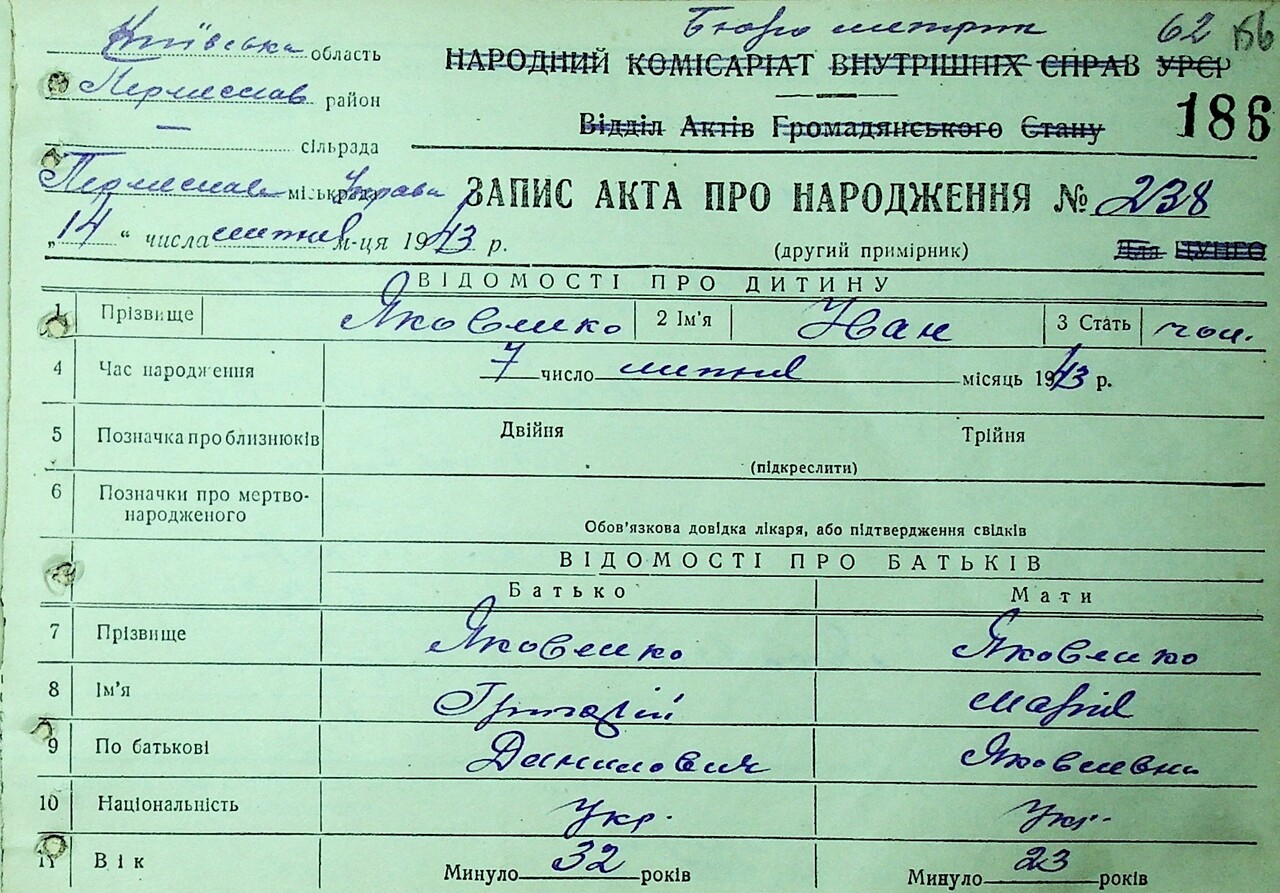 Київська область
Бюро метрик 62 156
НАРОДНИЙ КОМІСАРІАТ ВНУТРІШНІХ СПРАВ УРСР
Переяслав район
Відділ Актів Громадянського Стану
186
— сільрада
Переяслав міськрада Управа
ЗАПИС АКТА ПРО НАРОДЖЕННЯ № 238
„14“ числа липня м-ця 1943 р.
(другий примірник)
Для ЦУНГО
ВІДОМОСТІ ПРО ДИТИНУ
1 Прізвище Яковенко 2 Ім'я Іван 3 Стать чол.
4 Час народження 7 число липня місяць 1943 р.
5 Позначка про близнюків Двійня Трійня
(підкреслити)
6 Позначки про мертво-
народженого
Обов'язкова довідка лікаря, або підтвердження свідків
ВІДОМОСТІ ПРО БАТЬКІВ
Батько Мати
7 Прізвище Яковенко Яковенко
8 Ім'я Григорій Марія
9 По батькові Данилович Яковлевна
10 Національність Укр. Укр.
11 Вік Минуло 32 років Минуло 23 років